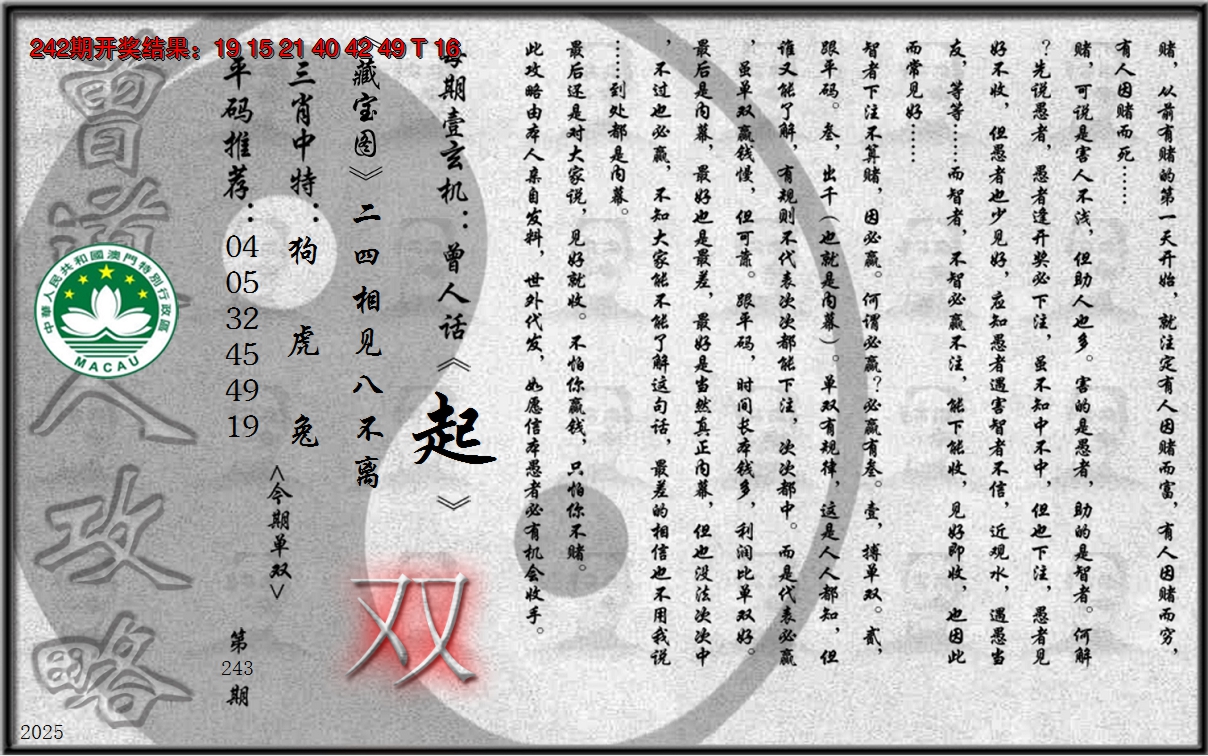 242期开奖结果：19 15 21 40 42 49 T 16
赌，从前有赌的第一天开始，就注定有人因赌而富，有人因赌而穷，
有人因赌而死……
赌，可说是害人不浅，但助人也多。害的是愚者，助的是智者。何解
？先说愚者，愚者逢开奖必下注，虽不知中不中，但也下注，愚者见
好不收，但愚者也少见好，应知愚者遇害智者不信，近观水，遇愚当
友，等等……而智者，不智必赢不注，能下能收，见好即收，也因此
而常见好……
智者下注不算赌，因必赢。何谓必赢？必赢有叁。壹，搏单双。贰，
跟平码。叁，出千（也就是内幕）。单双有规律，这是人人都知，但
谁又能了解，有规则不代表次次都能下注，次次都中。而是代表必赢
，虽单双赢钱慢，但可靠。跟平码，时间长本钱多，利润比单双好。
最后是内幕，最好也是最差，最好是当然真正内幕，但也没法次次中
，不过也必赢，不知大家能不能了解这句话，最差的相信也不用我说
……到处都是内幕。
最后还是对大家说，见好就收。不怕你赢钱，只怕你不赌。
此攻略由本人亲自发料，世外代发，如愿信本愚者必有机会收手。
每期壹玄机：曾人话《起》
《藏宝图》二四相见八不离
三肖中特：狗 虎 兔
<今期单双>
双
平码推荐：
04
05
32
45
49
19
第
243
期
曾道人攻略
中華人民共和國澳門特別行政區
MACAU
2025